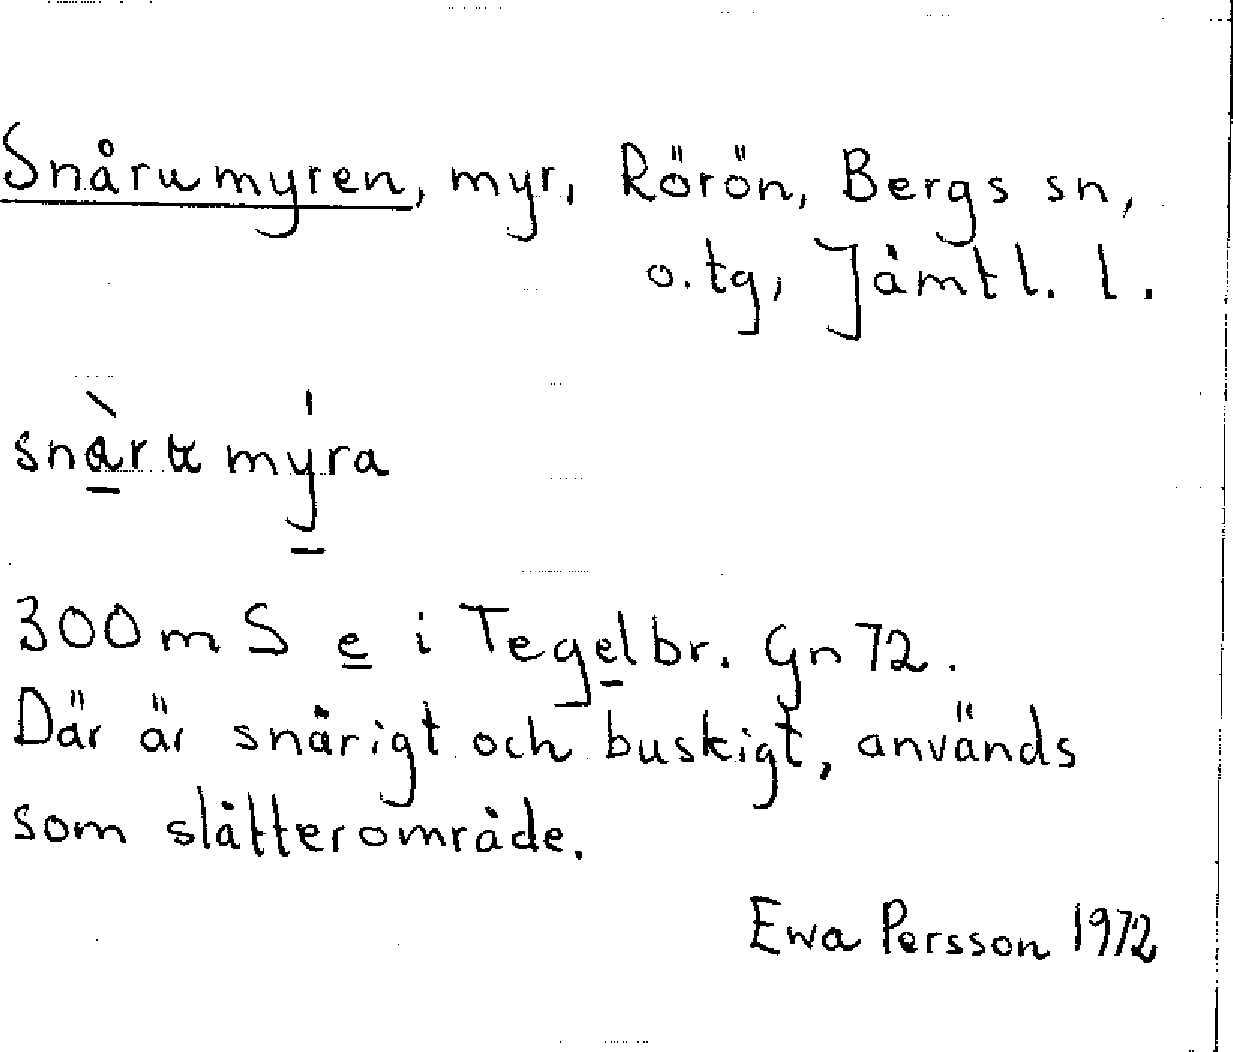 Snårumyren, myr, Rörön, Bergs sn,
o.tg, Jämtl. l.
300 m S e i Tegelbr. Gn 72.
Där är snårigt och buskigt, används
som slåtterområde.
Ewa Persson 1972